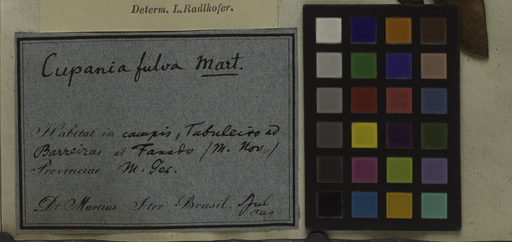 Determ. L.Radlkofer.
Cupania fulva Mart.
Habitat in campis, Tabuleiro ad
Barreiras et Fanado (M. Nov.)
Provinciae M. Ger.
Dr Martius Iter Brasil. Jul
Aug.